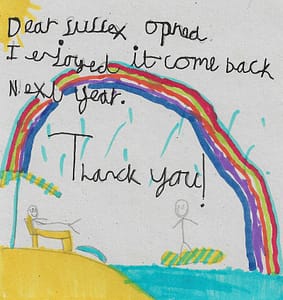 Dear sussex opred
I enjoyed it come back
Next year.
Thank you!